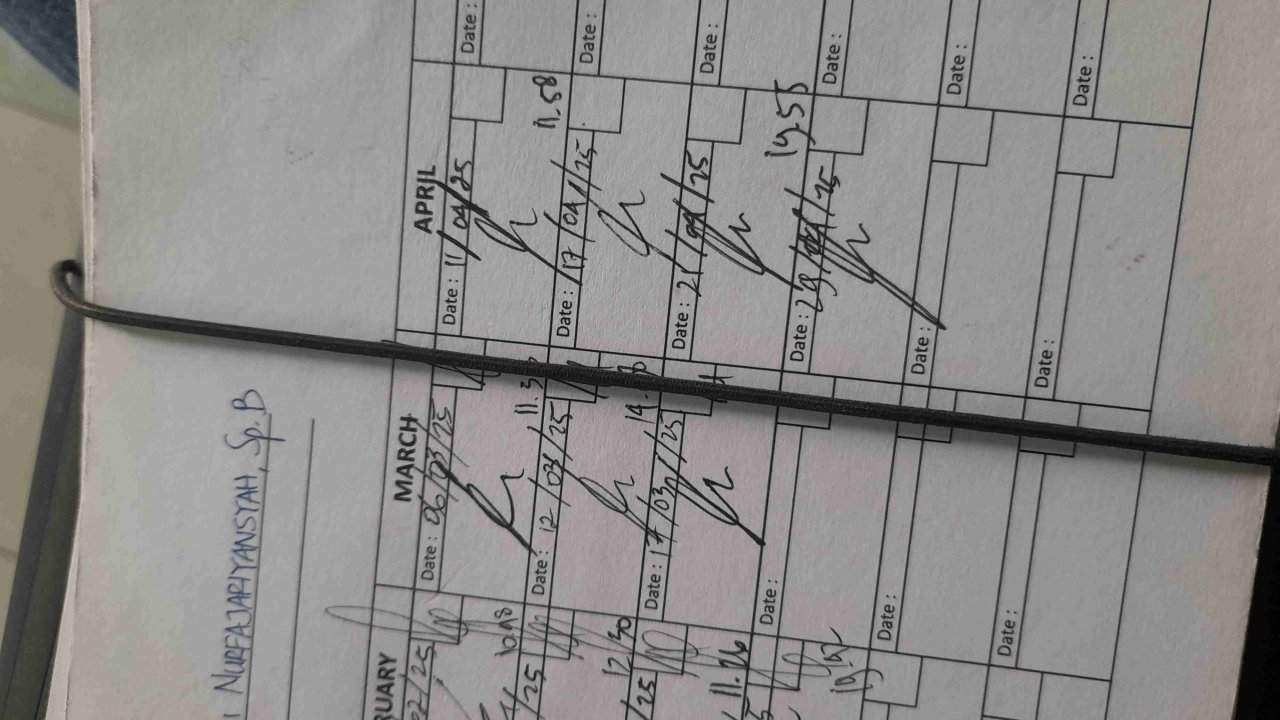 NURFAJARIYANSYAH, Sp.B
RUARY
02/25
10.18
/25
12/30
/25
11.26
19.52
MARCH
Date : 06/03/25
11.3
Date : 12/03/25
14.
Date : 17/03/25
Date :
Date :
Date :
APRIL
Date : 11/04/25
11.58
Date : 17/04/25
Date : 21/04/25
19.55
Date : 29/04/25
Date :
Date :
Date :
Date :
Date :
Date :
Date :
Date :